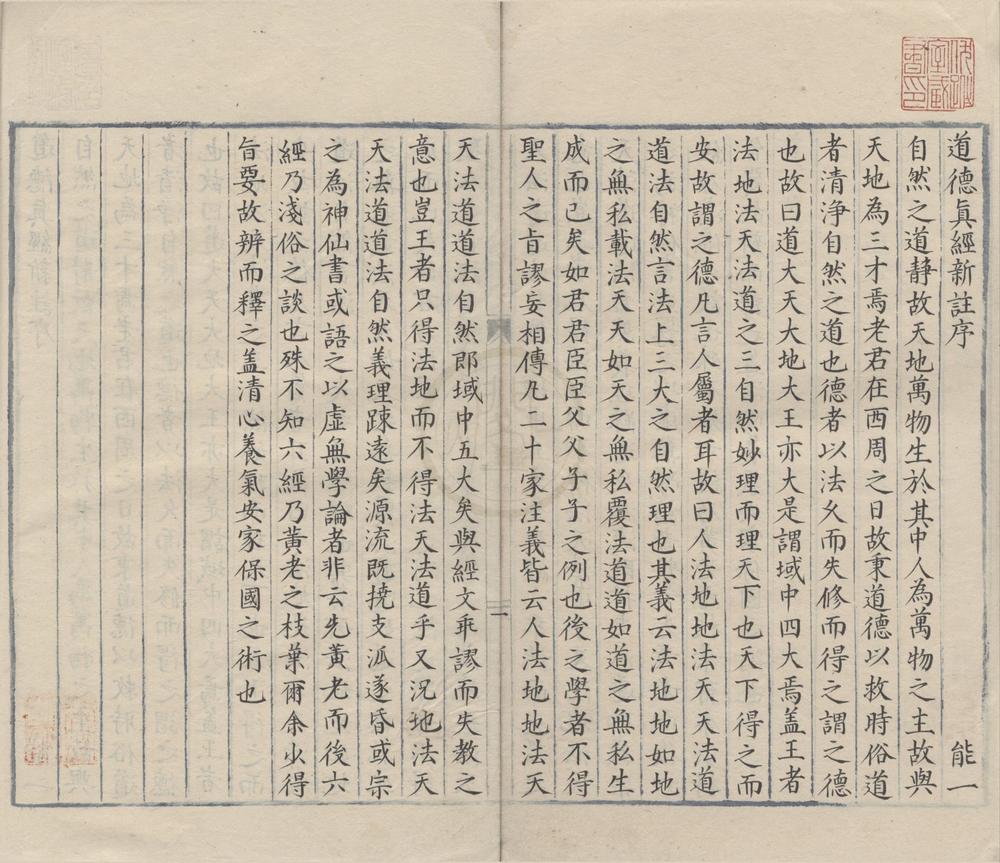 道德真經新註序 能一
自然之道静故天地萬物生於其中人為萬物之主故與
天地為三才焉老君在西周之日故秉道德以救時俗道
者清浄自然之道也德者以法久而失修而得之謂之德
也故曰道大天大地大王亦大是謂域中四大焉盖王者
法地法天法道之三自然妙理而理天下也天下得之而
安故謂之德凡言人屬者耳故曰人法地地法天天法道
道法自然言法上三大之自然理也其義云法地地如地
之無私載法天天如天之無私覆法道道如道之無私生
成而已矣如君君臣臣父父子子之例也後之學者不得
聖人之旨謬妄相傳凡二十家注義皆云人法地地法天
天法道道法自然即域中五大矣與經文乖謬而失教之
意也豈王者只得法地而不得法天法道乎又況地法天
天法道道法自然義理踈遠矣源流既撓支泒遂昏或宗
之為神仙書或語之以虚無學論者非云先黄老而後六
經乃淺俗之談也殊不知六經乃黃老之枝葉爾余少得
旨要故辨而釋之盖清心養氣安家保國之術也